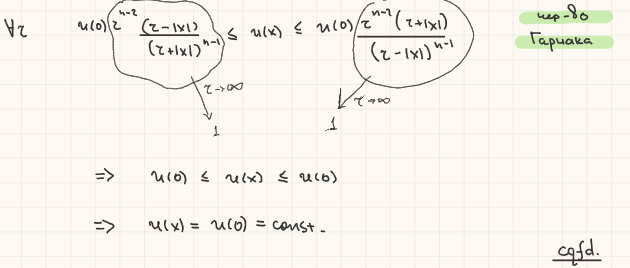 ∀τ u(0) τ^{n-2} (τ-|x|) / (τ+|x|)^{n-1} ≤ u(x) ≤ u(0) τ^{n-2} (τ+|x|) / (τ-|x|)^{n-1} нер-во
Гарнака
τ→∞ τ→∞
1 1
=> u(0) ≤ u(x) ≤ u(0)
=> u(x) = u(0) = const.
cqfd.